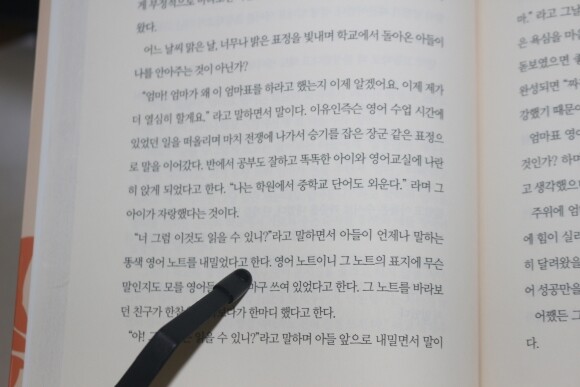 왔다.
어느 날씨 맑은 날, 너무나 밝은 표정을 빛내며 학교에서 돌아온 아들이
나를 안아주는 것이 아닌가?
"엄마! 엄마가 왜 이 엄마표를 하라고 했는지 이제 알겠어요. 이제 제가
더 열심히 할게요." 라고 말하면서 말이다. 이유인즉슨 영어 수업 시간에
있었던 일을 떠올리며 마치 전쟁에 나가서 승기를 잡은 장군 같은 표정으
로 말을 이어갔다. 반에서 공부도 잘하고 똑똑한 아이와 영어교실에 나란
히 앉게 되었다고 한다. "나는 학원에서 중학교 단어도 외운다." 라며 그
아이가 자랑했다는 것이다.
"너 그럼 이것도 읽을 수 있니?"라고 말하면서 아들이 언제나 말하는
똥색 영어 노트를 내밀었다고 한다. 영어 노트이니 그 노트의 표지에 무슨
말인지도 모를 쓰여 있었다고 한다. 그 노트를 바라보
던 친구가 한마디 했다고 한다.
수 있니?"라고 말하며 아들 앞으로 내밀면서 말이
마." 라고
은 욕심을
돌보았으면
완성되면
강했기 때문
엄마표
것인가?
고 생각했으
주위에
에 힘이
히 달려왔
어 성공만을
어쨌든
다.